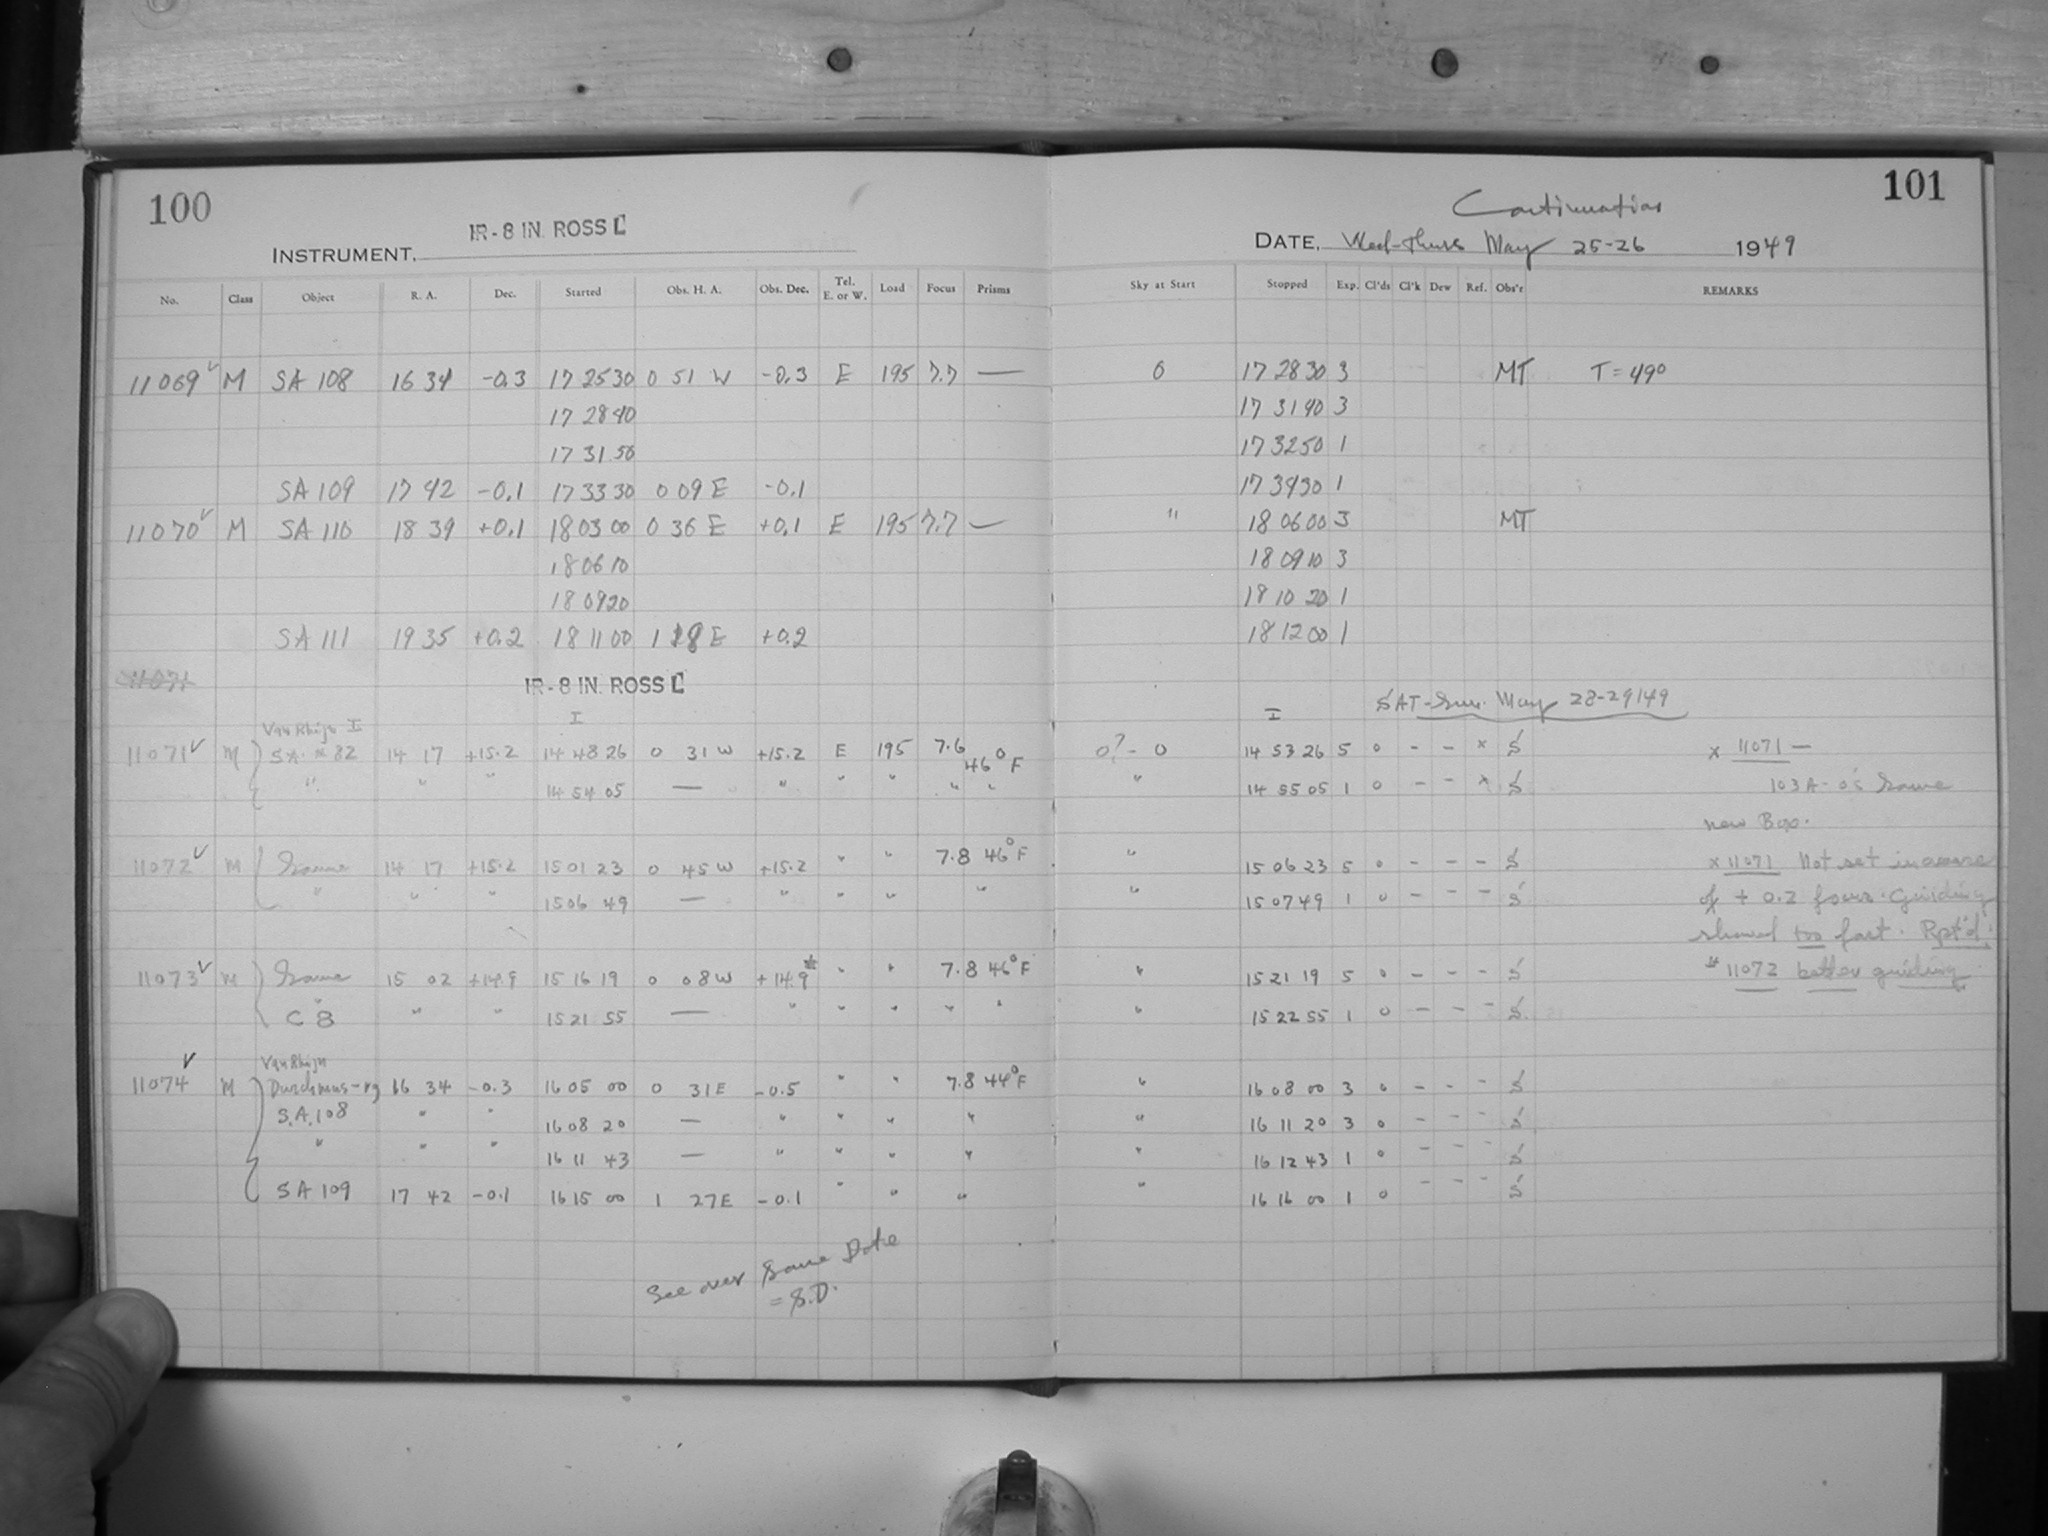 100
IR-8 IN. ROSS C
INSTRUMENT,
No. Class Object R. A. Dec. Started Obs. H. A. Obs. Dec. Tel. E. or W. Load Focus Prisms
11069 ✓ M SA 108 16 34 -0.3 17 25 30 0 51 W -0.3 E 195 7.7 —
17 28 40
17 31 50
SA 109 17 42 -0.1 17 33 30 0 09 E -0.1
11070 ✓ M SA 110 18 39 +0.1 18 03 00 0 36 E +0.1 E 195 7.7 —
18 06 10
18 09 20
SA 111 19 35 +0.2 18 11 00 1 28 E +0.2
11071
IR-8 IN. ROSS C
I
Van Rhijn I
11071 ✓ M S.A. * 82 14 17 +15.2 14 48 26 0 31 W +15.2 E 195 7.6 46° F
" " " 14 54 05 — " " " " "
11072 ✓ M Same 14 17 +15.2 15 01 23 0 45 W +15.2 " " 7.8 46° F
" " " 15 06 49 — " " " "
11073 ✓ M Same 15 02 +14.9 15 16 19 0 08 W +14.9 * " " 7.8 46° F
C 8 " " 15 21 55 — " " " " "
Van Rhijn
11074 ✓ M 16 34 -0.3 16 05 00 0 31 E -0.5 " " 7.8 44° F
S.A. 108 " " 16 08 20 — " " " "
" " " 16 11 43 — " " " "
SA 109 17 42 -0.1 16 15 00 1 27 E -0.1 " " "
See over Same Date
= S.D.
101
Continuation
DATE, Wed-Thurs May 25-26 1949
Sky at Start Stopped Exp. Cl'ds Cl'k Dew Ref. Obs'r REMARKS
0 17 28 30 3 MT T = 49°
17 31 40 3
17 32 50 1
17 34 30 1
" 18 06 00 3 MT
18 09 10 3
18 10 20 1
18 12 00 1
I SAT-Sun. May 28-29/49
0? - 0 14 53 26 5 0 - - x S x 11071 —
" 14 55 05 1 0 - - x S 103A-O's Same
new Box.
" 15 06 23 5 0 - - - S x 11071 Not set increase
" 15 07 49 1 0 - - - S of + 0.2 focus. Guiding
showed too fast. Rpt'd.
" 15 21 19 5 0 - - - S * 11072 better guiding
" 15 22 55 1 0 - - - S.
" 16 08 00 3 0 - - - S
" 16 11 20 3 0 - - - S
" 16 12 43 1 0 - - - S
" 16 16 00 1 0 - - - S